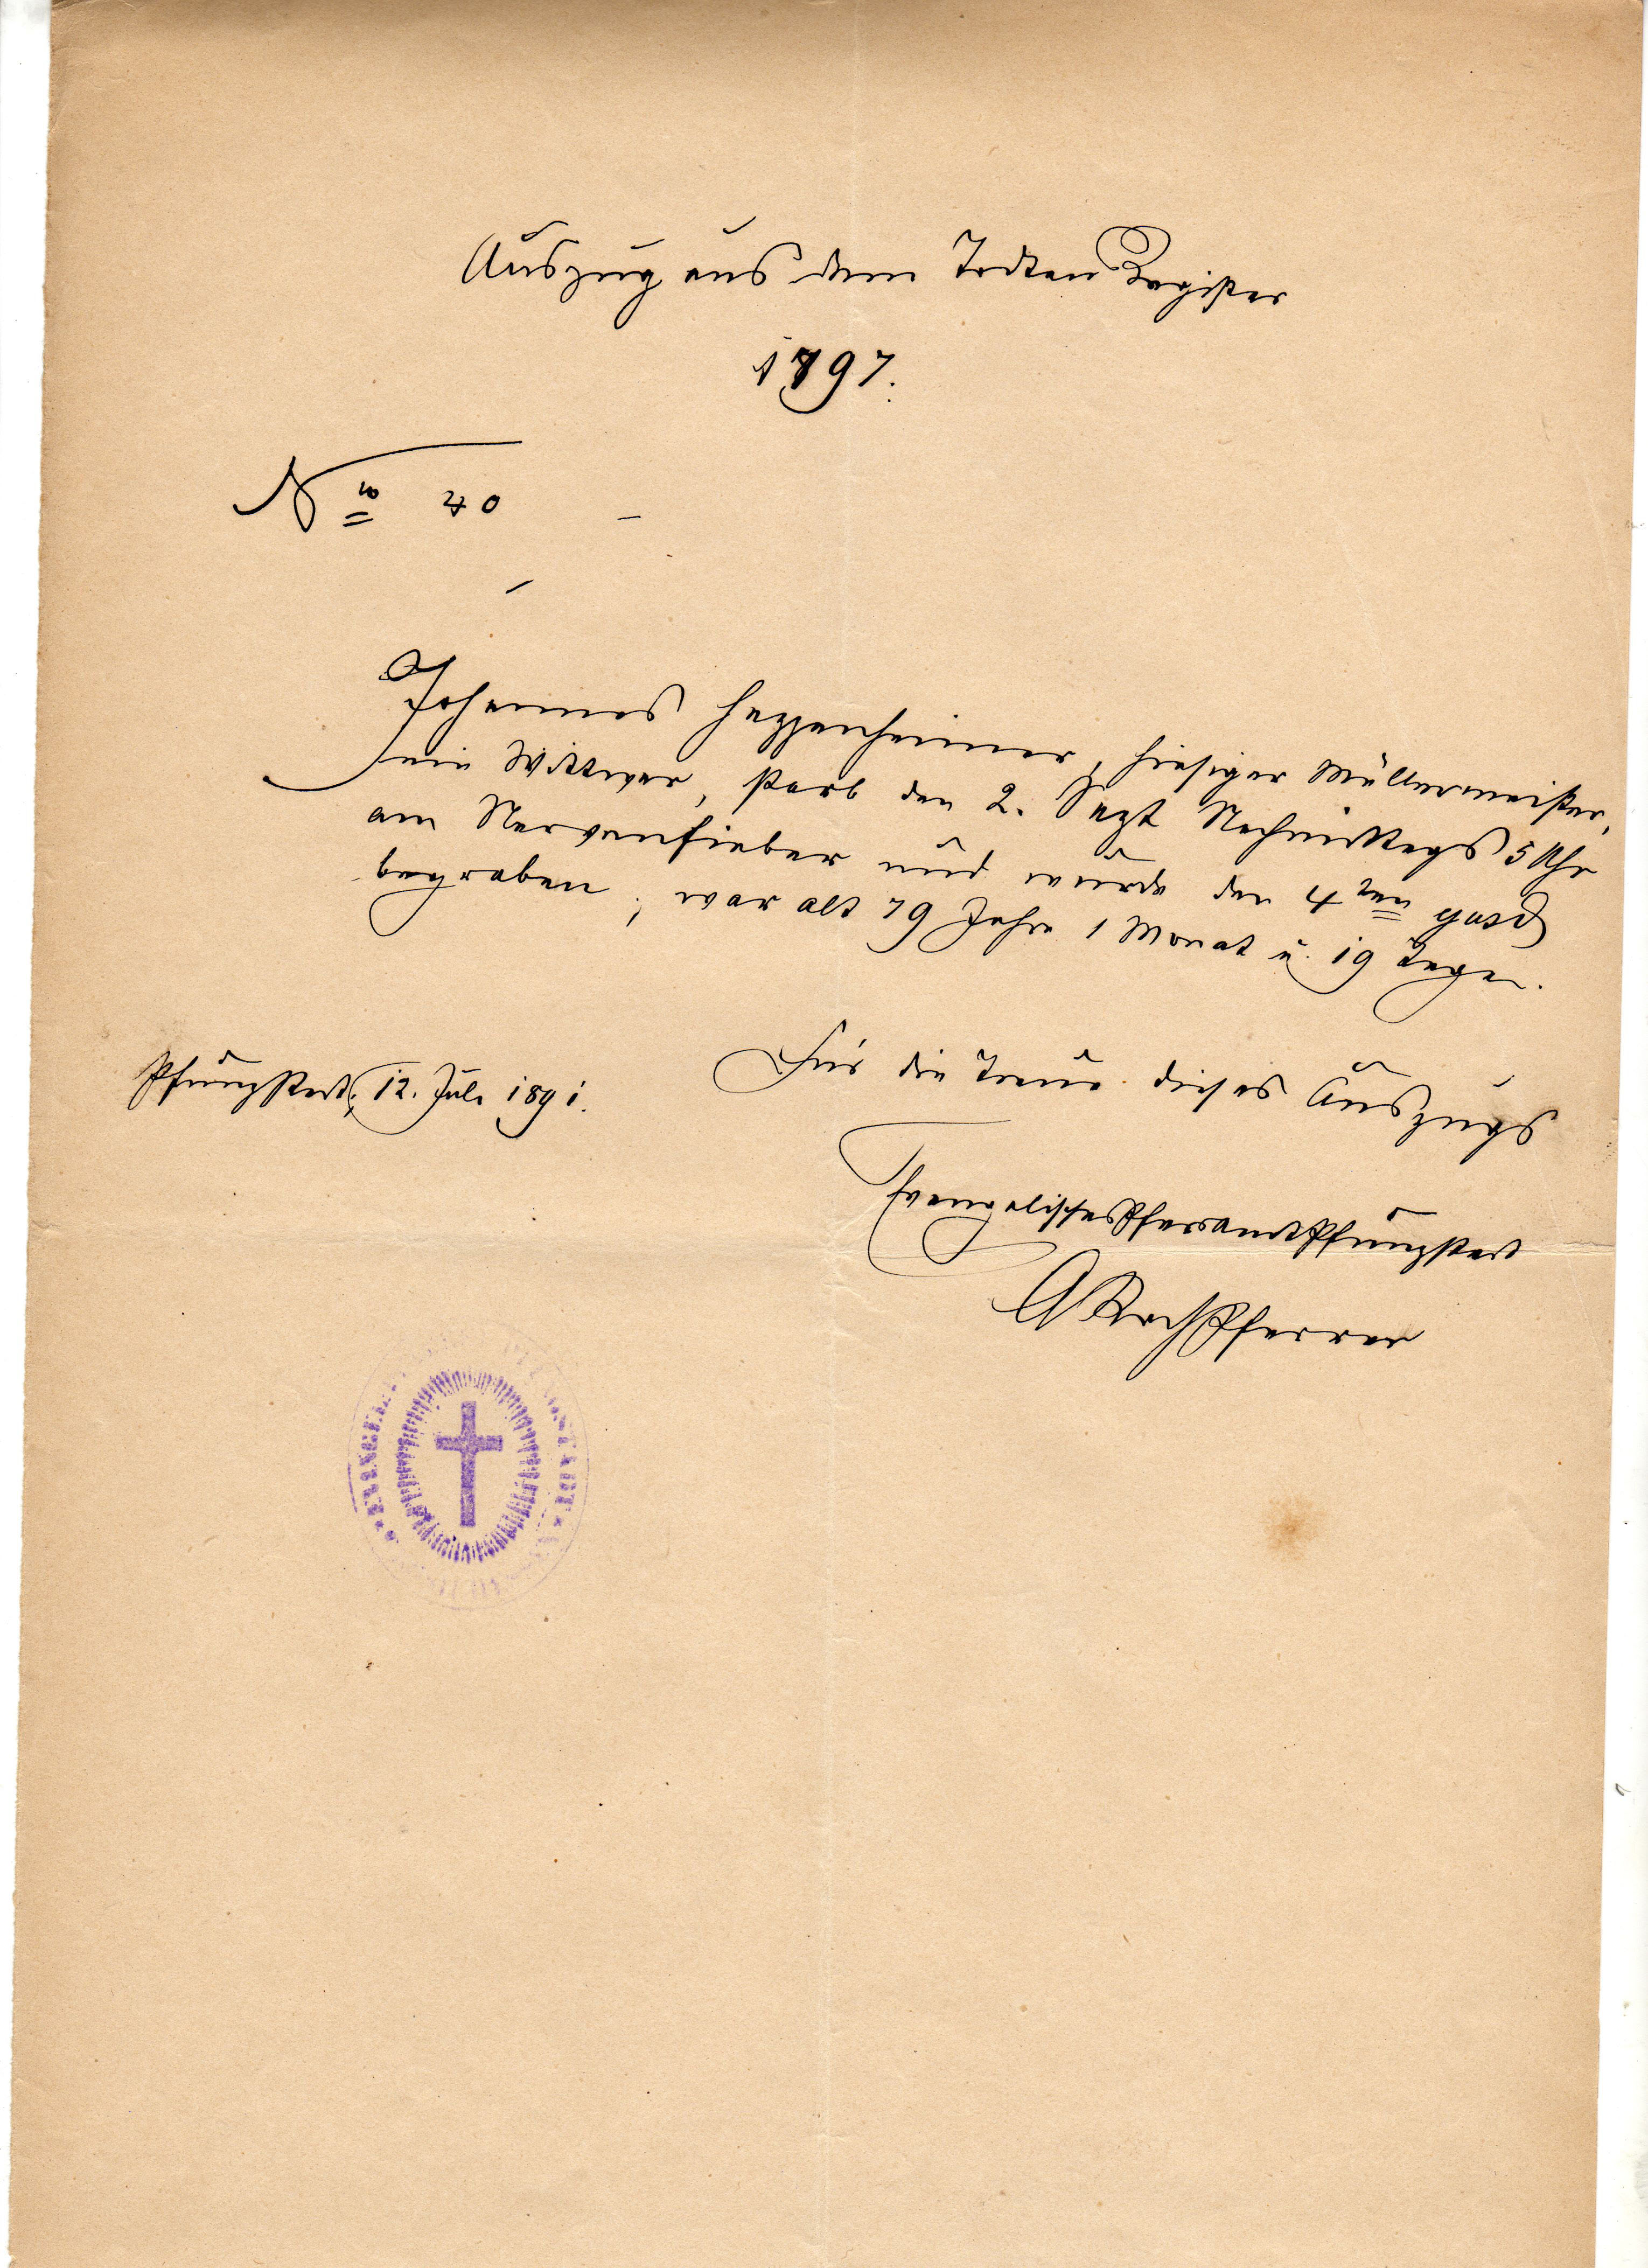 Auszug aus dem Todten Register
1797.
No 40
Johannes Heppenheimer, hiesiger Müllermeister,
ein Wittwer, starb den 2. Sept Nachmittags 5 Uhr
am Nervenfieber und wurde den 4ten
begraben; war alt 76 Jahre 1 Monat u. 19 Tage.
Pfungstadt, 12. Juli 1891.
Für die Treue dieses Auszugs
Evangelisches Pfarramt Pfungstadt
Koch Pfarrer
EVANGEL